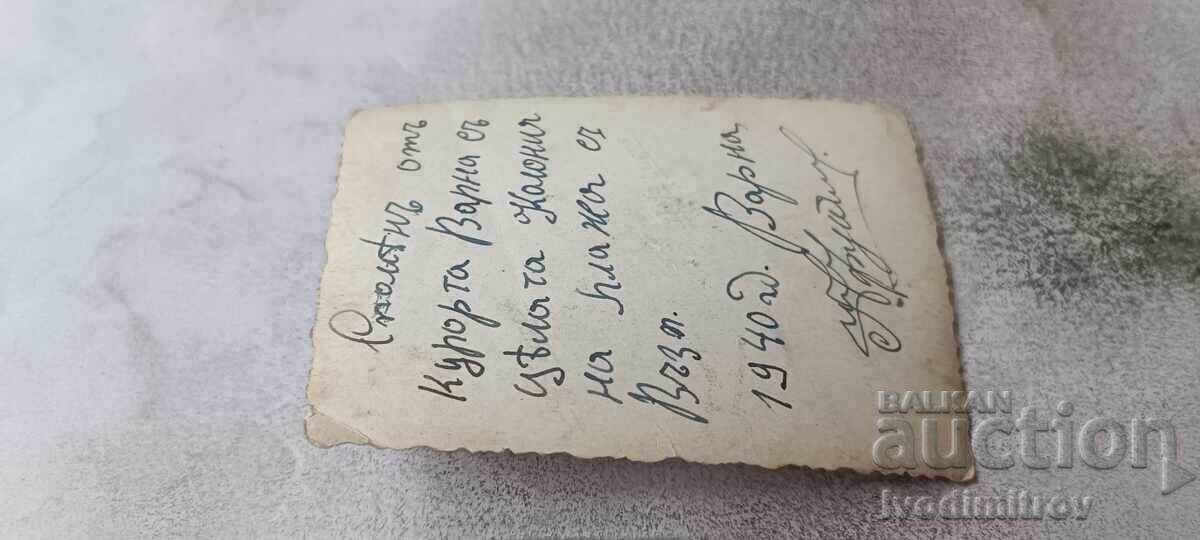 Спомѣнъ отъ
Курорта Варна съ
цѣлата Колония
на плажа съ
Възп.
1940 год. Варна,
BALKAN
auction
ivodimitrov